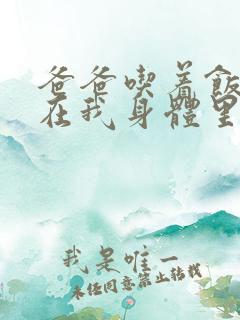 爸爸喫着飯
在我身體里
我是唯一
未经同意禁止转载